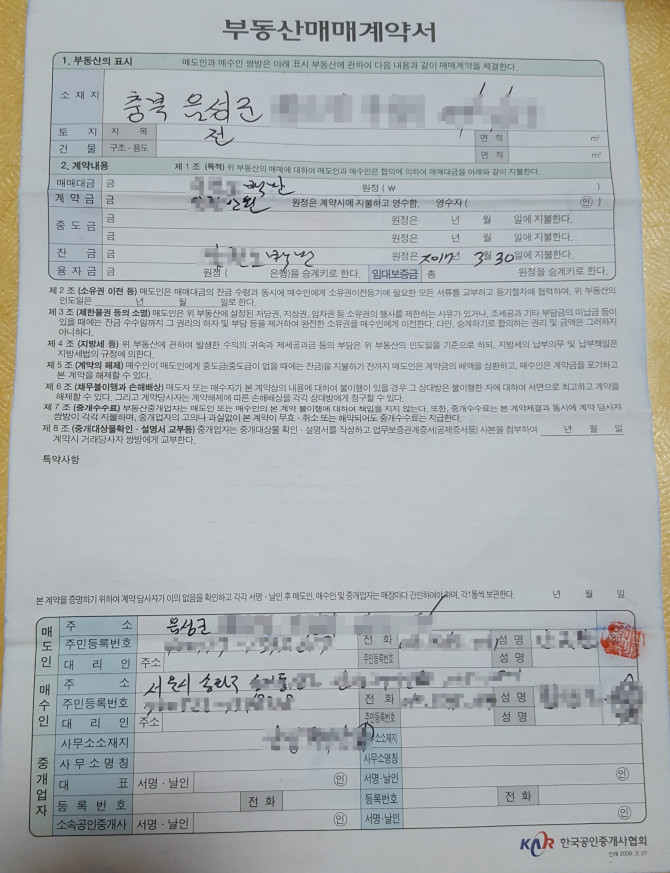 부동산매매계약서
1. 부동산의 표시 매도인과 매수인 쌍방은 아래 표시 부동산에 관하여 다음 내용과 같이 매매계약을 체결한다.
소 재 지 충북 음성군
토 지 지 목 전 면 적 ㎡
건 물 구조·용도 면 적 ㎡
2. 계약내용 제 1 조 (목적) 위 부동산의 매매에 대하여 매도인과 매수인은 합의에 의하여 매매대금을 아래와 같이 지불한다.
매매대금 금 백만 원정 (₩ )
계 약 금 금 원정은 계약시에 지불하고 영수함. 영수자 ( 인 )
중 도 금 금 원정은 년 월 일에 지불한다.
금 원정은 년 월 일에 지불한다.
잔 금 금 원정은 2017년 3월 30일에 지불한다.
융 자 금 금 원정 ( 은행)을 승계키로 한다. 임대보증금 총 원정을 승계키로 한다.
제 2 조 (소유권 이전 등) 매도인은 매매대금의 잔금 수령과 동시에 매수인에게 소유권이전등기에 필요한 모든 서류를 교부하고 등기절차에 협력하며, 위 부동산의
인도일은 년 월 일로 한다.
제 3 조 (제한물권 등의 소멸) 매도인은 위 부동산에 설정된 저당권, 지상권, 임차권 등 소유권의 행사를 제한하는 사유가 있거나, 조세공과 기타 부담금의 미납금 등이
있을 때에는 잔금 수수일까지 그 권리의 하자 및 부담 등을 제거하여 완전한 소유권을 매수인에게 이전한다. 다만, 승계하기로 합의하는 권리 및 금액은 그러하지
아니하다.
제 4 조 (지방세 등) 위 부동산에 관하여 발생한 수익의 귀속과 제세공과금 등의 부담은 위 부동산의 인도일을 기준으로 하되, 지방세의 납부의무 및 납부책임은
지방세법의 규정에 의한다.
제 5 조 (계약의 해제) 매수인이 매도인에게 중도금(중도금이 없을 때에는 잔금)을 지불하기 전까지 매도인은 계약금의 배액을 상환하고, 매수인은 계약금을 포기하고
본 계약을 해제할 수 있다.
제 6 조 (채무불이행과 손해배상) 매도자 또는 매수자가 본 계약상의 내용에 대하여 불이행이 있을 경우 그 상대방은 불이행한 자에 대하여 서면으로 최고하고 계약을
해제할 수 있다. 그리고 계약당사자는 계약해제에 따른 손해배상을 각각 상대방에게 청구할 수 있다.
제 7 조 (중개수수료) 부동산중개업자는 매도인 또는 매수인의 본 계약 불이행에 대하여 책임을 지지 않는다. 또한, 중개수수료는 본 계약체결과 동시에 계약 당사자
쌍방이 각각 지불하며, 중개업자의 고의나 과실없이 본 계약이 무효·취소 또는 해약되어도 중개수수료는 지급한다.
제 8 조 (중개대상물확인·설명서 교부등) 중개업자는 중개대상물 확인·설명서를 작성하고 업무보증관계증서(공제증서등) 사본을 첨부하여 년 월 일
계약시 거래당사자 쌍방에게 교부한다.
특약사항
본 계약을 증명하기 위하여 계약 당사자가 이의 없음을 확인하고 각각 서명·날인 후 매도인, 매수인 및 중개업자는 매장마다 간인하여야 하며, 각1통씩 보관한다. 년 월 일
매도인 주 소 음성군
주민등록번호 전 화 성 명
대 리 인 주소 주민등록번호 성 명
매수인 주 소 서울시 송파구
주민등록번호 전 화 성 명
대 리 인 주소 주민등록번호 성 명
중개업자 사무소소재지 사무소소재지
사무소명칭 사무소명칭
대 표 서명·날인 인 서명·날인 인
등 록 번 호 전 화 등록번호 전 화
소속공인중개사 서명·날인 인 서명·날인 인
KAR 한국공인중개사협회
인쇄 2009. 3. 27